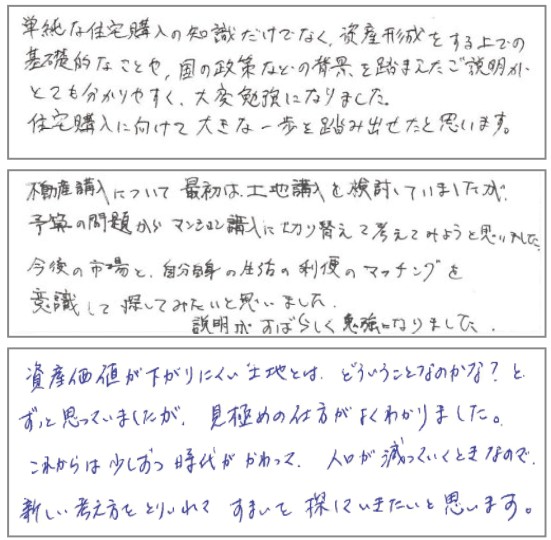 単純な住宅購入の知識だけでなく、資産形成をする上での
基礎的なことや、国の政策などの背景を踏まえたご説明が
とても分かりやすく、大変勉強になりました。
住宅購入に向けて大きな一歩を踏み出せたと思います。
不動産購入について最初は、土地購入を検討していましたが、
予算の問題からマンション購入に切り替えて考えてみようと思いました。
今後の市場と、自分自身の生活の利便のマッチングを
意識して探してみたいと思いました。
説明がすばらしく勉強になりました。
資産価値が下がりにくい土地とは、どういうことなのかな?と、
ずっと思っていましたが、見極めの仕方がよくわかりました。
これからは少しずつ時代がかわって、人口が減っていくときなので、
新しい考え方をとりいれてすまいを探していきたいと思います。